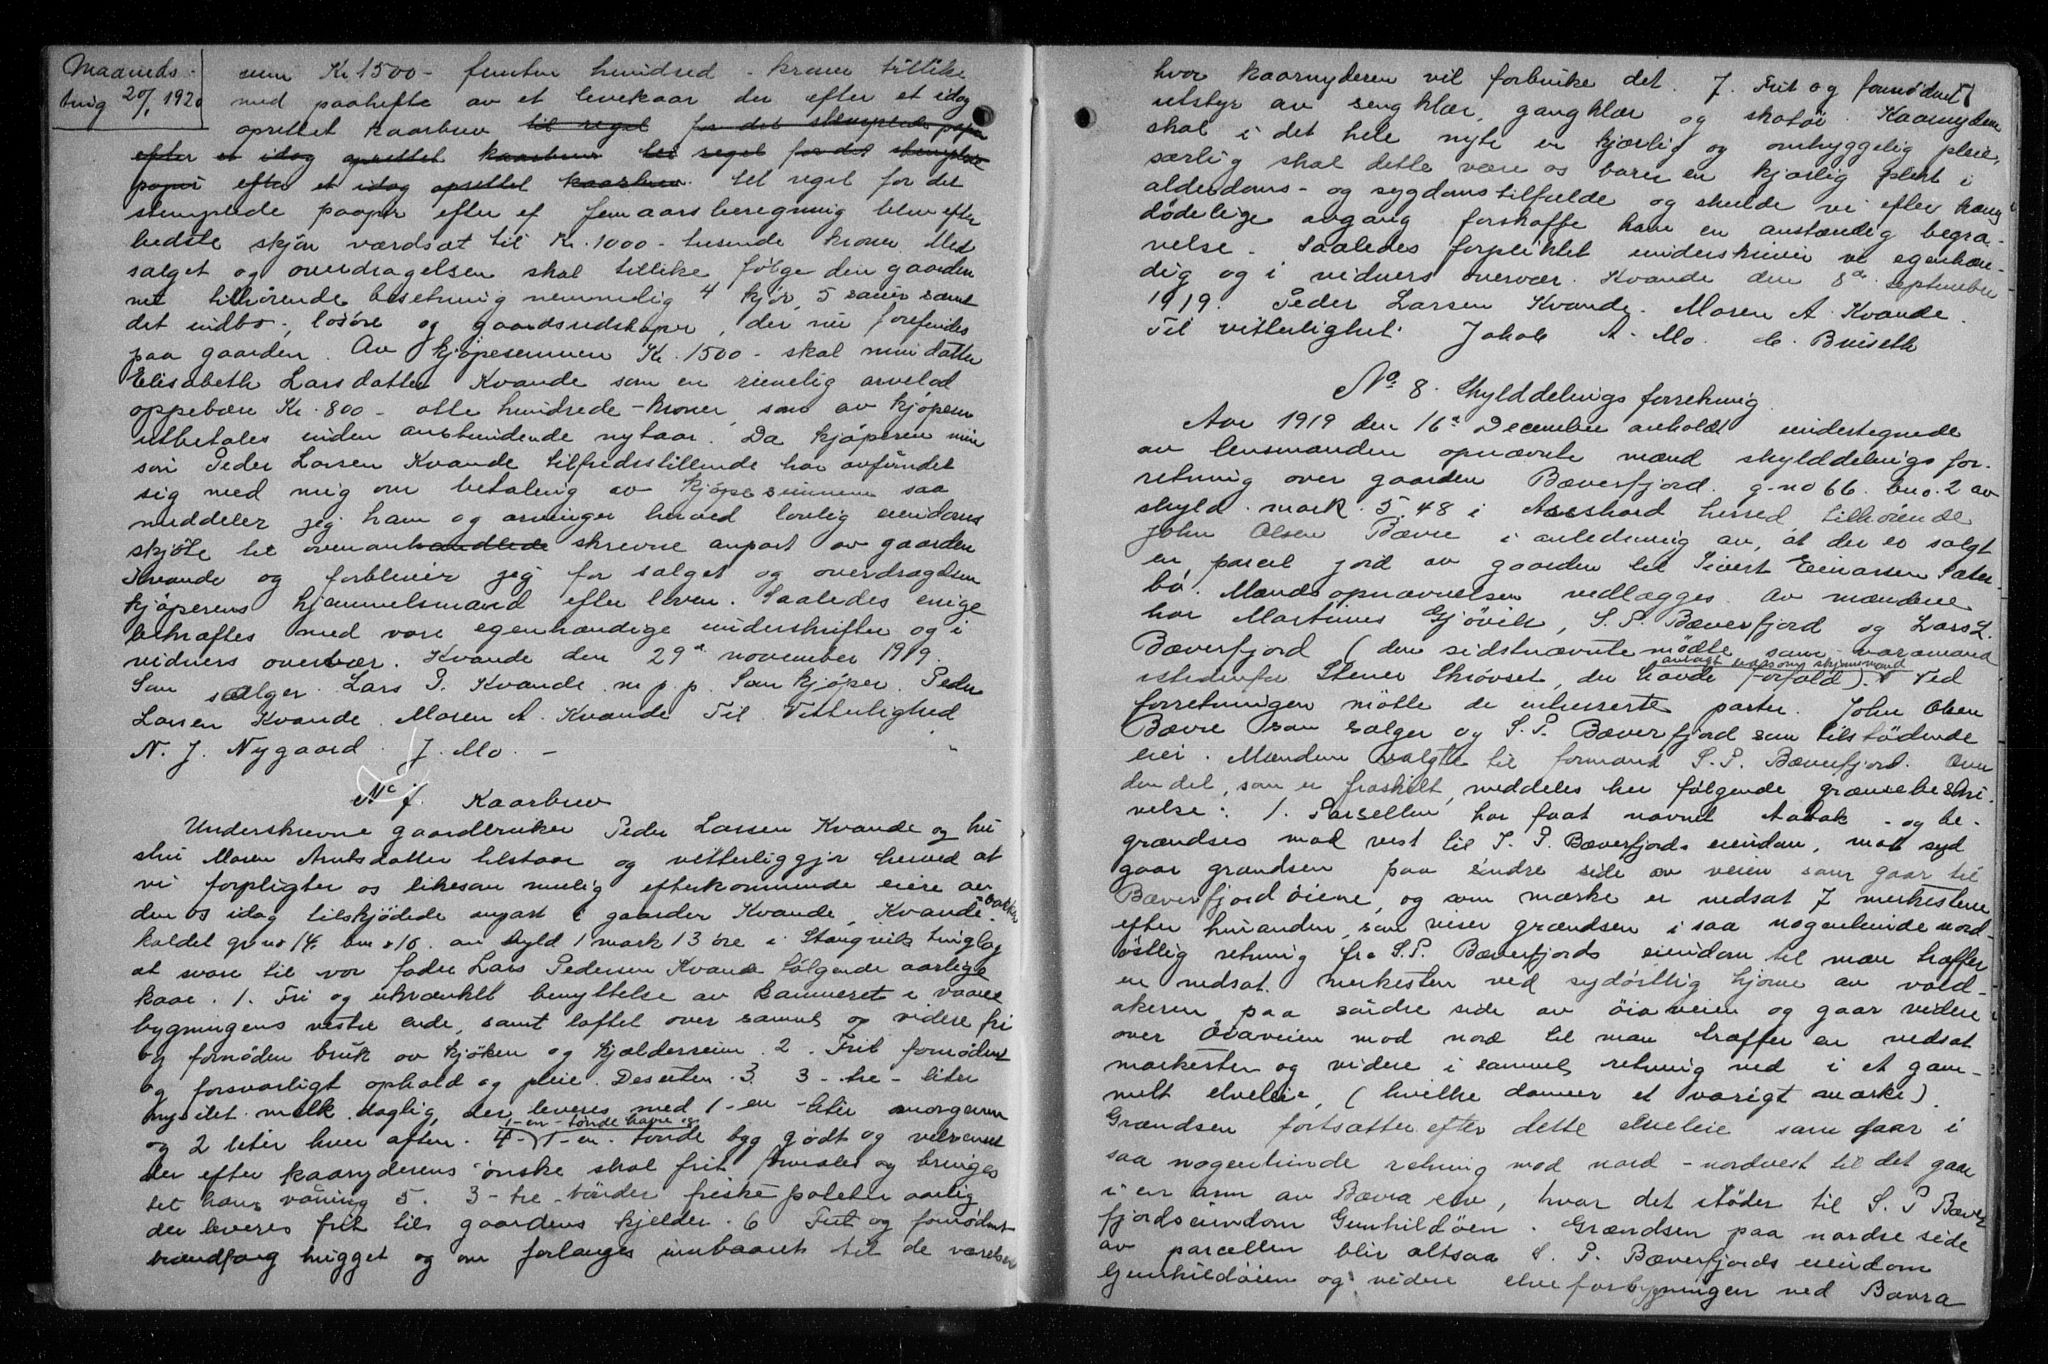 Maaneds-
ting 20/1 1920
sum Kr 1500 - femten hundred - kroner tillike
med paahefte av et levekaar der efter et idag
oprettet kaarbrev til regel for det stemplede papir
efter et idag oprettet kaarbrev til regel for det stemplede
papir efter et idag oprettet kaarbrev til regel for det
stemplede papir efter et femaarsberegning blev efter
bedste skjøn værdsat til Kr. 1000 - tusinde kroner Med
salget og overdragelsen skal tillike følge den gaarden
nu tilhørende besetning nemmelig 4 kjør, 5 sauer samt
det indbo-, løsøre og gaardsredskaper, der nu forefindes
paa gaarden. Av kjøpesummen Kr. 1500 - skal min datter
Elisabeth Larsdatter Kvande som en rimelig arvelod
oppebære Kr. 800 - otte hundrede - kroner, som av kjøperen
utbetales inden anstundende nytaar. Da kjøperen min
søn Peder Larsen Kvande tilfredsstillende har avfundet
sig med mig om betaling av kjøpesummen saa
meddeler jeg ham og arvinger herved lovlig eiendoms
skjøte til ovenanhandlede skrevne anpart av gaarden
Kvande og forbliver jeg for salget og overdragelsen
kjøperens hjemmelsmand efter loven. Saaledes enige
bekræftes med vore egenhændige underskrifter og i
vidners overvær. Kvande den 29de november 1919.
Som sælger. Lars P. Kvande m. p. p. Som kjøper. Peder
Larsen Kvande. Maren A. Kvande Til Vitterlighed
N. J. Nygaard. J. Mo. -
No 7. Kaarbrev
Underskrevne gaardbruker Peder Larsen Kvande og hu
stru Maren Arntsdatter tilstaar og vitterliggjør herved at
vi forpligter os likesom mulig efterkommende eiere av
den os idag tilskjødede anpart i gaarden Kvande, Kvande-bakken
kaldet gr no 14, bno 16. av skyld 1 mark 13 øre i Stangvik tinglag
at svare til vor fader Lars Pedersen Kvande følgende aarlige
kaar. 1. Fri og ukrænket benyttelse av kammeret i vaares
bygningens vestre ende, samt loftet over samme og videre fri
og fornøden bruk av kjøken og kjælderrum. 2. Frit fornødent
og forsvarligt ophold og pleie. Desuten 3. 3 - tre - liter
nysilet melk daglig, der leveres med 1 - en - liter morgenen
og 2 liter hver aften. 4 - 1 - en - tønde havre og 1 - en - tønde byg godt og velrenset
der efter kaaryderens ønske skal frit formales og bringes
til hans vaaning 5. 3 - tre - tønder friske poteter aarlig
der leveres frit til gaardens kjelder. 6 Frit og fornødent
brændfang hugget og om forlanges indbaaret til de værelser
hvor kaarnyderen vil forbruke det. 7. Frit og fornødent
utstyr av sengklær, gangklær og skotøi. Kaarnyderen
skal i det hele nyte en kjærlig og omhyggelig pleie,
særlig skal dette være os baren en kjærlig plikt i
alderdoms- og sygdomstilfælde og skulde vi efter hans
dødelige avgang forskaffe ham en anstændig begra-
velse. Saaledes forpliktet underskriver vi egenhæn-
dig og i vidners overvær. Kvande den 8de september
1919. Peder Larsen Kvande. Maren A. Kvande.
Til vitterlighet. Jakob A. Mo. C. Buiseth
No 8. Skylddelings forretning.
Aar 1919 den 16de December avholdt undertegnede
av lensmanden opnævnte mænd skylddelings for-
retning over gaarden Bæverfjord. g-no 66. bno. 2 av
skyld mark. 5.48 i Aasskard herred, tilhørende
John Olsen Bævre i anledning av, at der er solgt
en parcel jord av gaarden til Sivert Einarsen Sæter-
bø. Mændsopnævnelsen vedlægges. Av mændene
har Martinus Gjøvik, S. P. Bæverfjord og Lars L.
Bæverfjord (den sidstnævnte mødte som varamand
istedenfor Stener Skrøvset, der havde forfald) avlagt ed som skjønsmand. Ved
forretningen møtte de interesserte parter. John Olsen
Bævre som sælger og S. P. Bæverfjord som tilstødende
eier. Mændene valgte til formand S. P. Bæverfjord. Over
den del, som er fraskilt, meddeles her følgende grænsebeskri-
velse: 1. Parsellen har faat navnet Aabak - og be-
grændses mod vest til S. P. Bæverfjords eiendom, mod syd
gaar grændsen paa søndre side av veien som gaar til
Bæverfjordøiene, og som mærke er nedsat 7 merkestene
efter hinanden, som viser grændsen i saa nogenlunde nord-
østlig retning fra S. P. Bæverfjords eiendom til man træffer
en nedsat merkesten ved sydøstlig hjørne av vold-
akeren paa søndre side av øiaveien og gaar videre
over øiaveien mod nord til man træffer en nedsat
merkesten og videre i samme retning ned i et gam-
melt elveleie, (hvilke danner et varigt mærke).
Grændsen fortsætter efter dette elveleie som gaar i
saa nogenlunde retning mod nord - nordvest til det gaar
i en arm av Bævra elv, hvor det støder til S. P Bæver
fjords eiendom Gunhildøen. Grændsen paa nordre side
av parcellen blir altsaa S. P. Bæverfjords eiendom
Gunhildøien og videre elveforbygningen ved Bævra